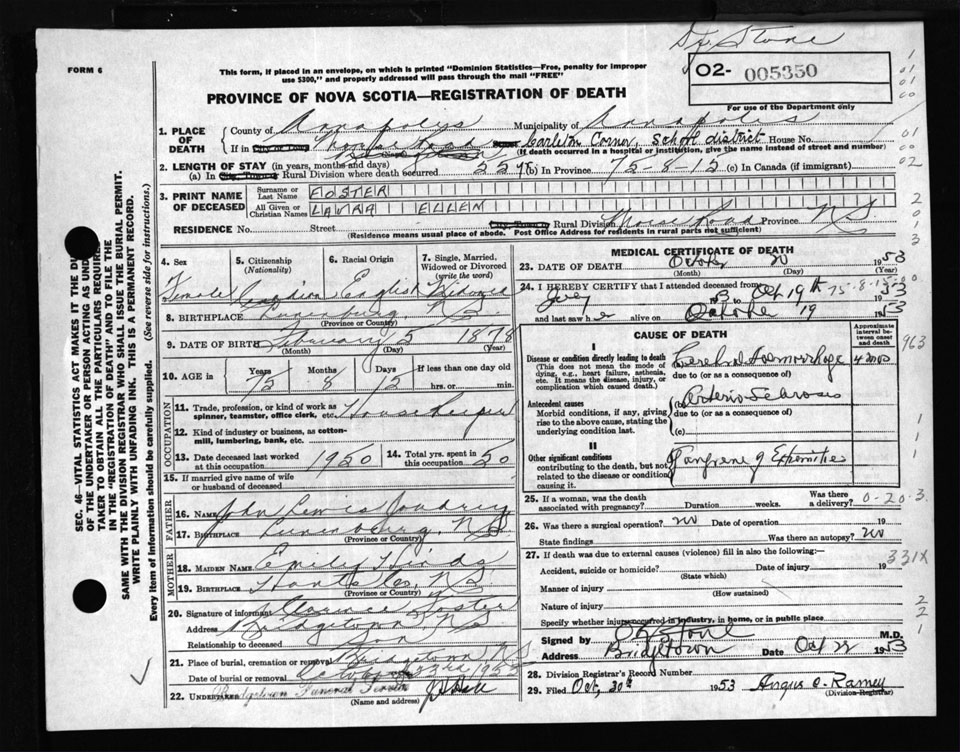 Dr. Stone
FORM 6
This form, if placed in an envelope, on which is printed "Dominion Statistics—Free, penalty for improper
use $300," and properly addressed will pass through the mail "FREE"
O2- 005350
PROVINCE OF NOVA SCOTIA—REGISTRATION OF DEATH
For use of the Department only
1. PLACE OF DEATH
County of Annapolis Municipality of Annapolis
If in City or Town Road Carleton Corner, School district House No.
(If death occurred in a hospital or institution, give the name instead of street and number)
2. LENGTH OF STAY (in years, months and days)
(a) In City, Town or Rural Division where death occurred 25 yr (b) In Province 75-8-15 (c) In Canada (if immigrant)
3. PRINT NAME OF DECEASED
Surname or Last Name FOSTER
All Given or Christian Names LAURA ELLEN
RESIDENCE No. Street City, Town or Rural Division Morse Road Province N S
(Residence means usual place of abode. Post Office Address for residents in rural parts not sufficient)
SEC. 46—VITAL STATISTICS ACT MAKES IT THE DU
OF THE UNDERTAKER OR PERSON ACTING AS UNDER
TAKER TO OBTAIN ALL THE PARTICULARS REQUIRE
IN THE "REGISTRATION OF DEATH" AND TO FILE THE
SAME WITH THE DIVISION REGISTRAR WHO SHALL ISSUE THE BURIAL PERMIT.
WRITE PLAINLY WITH UNFADING INK. THIS IS A PERMANENT RECORD.
Every item of information should be carefully supplied. (See reverse side for instructions.)
4. Sex
Female
5. Citizenship (Nationality)
Canadian
6. Racial Origin
English
7. Single, Married, Widowed or Divorced (write the word)
Widowed
8. BIRTHPLACE Lunenburg, N.S.
(Province or Country)
9. DATE OF BIRTH February 5 1878
(Month) (Day) (Year)
10. AGE in Years Months Days If less than one day old
75 8 15 hrs. or min.
OCCUPATION
11. Trade, profession, or kind of work as spinner, teamster, office clerk, etc. Housekeeper
12. Kind of industry or business, as cotton-mill, lumbering, bank, etc.
13. Date deceased last worked at this occupation 1950
14. Total yrs. spent in this occupation 50
15. If married give name of wife or husband of deceased
FATHER
16. Name John Lewis Joudrey
17. BIRTHPLACE Lunenburg, N S
(Province or Country)
MOTHER
18. MAIDEN NAME Emily Hinds
19. BIRTHPLACE Hants Co, N S
(Province or Country)
20. Signature of informant Clarence Foster
Address Bridgetown N S
Relationship to deceased Son
21. Place of burial, cremation or removal Bridgetown N S
Date of burial or removal October 22nd 1953
22. UNDERTAKER Bridgetown Funeral Service
(Name and address)
MEDICAL CERTIFICATE OF DEATH
23. DATE OF DEATH October 20 1953
(Month) (Day) (Year)
24. I HEREBY CERTIFY that I attended deceased from
13 to Oct 19th 1953
75-8-15
and last saw her alive on October 19 1953
CAUSE OF DEATH
Approximate interval between onset and death
I
Disease or condition directly leading to death
(This does not mean the mode of dying, e.g., heart failure, asthenia, etc. It means the disease, injury, or complication which caused death.)
Cerebral Haemorrhage 4 mos
due to (or as a consequence of)
Antecedent causes
Morbid conditions, if any, giving rise to the above cause, stating the underlying condition last.
(b) Arterio Sclerosis
due to (or as a consequence of)
(c)
II
Other significant conditions
contributing to the death, but not related to the disease or condition causing it.
Gangrene of Extremities
25. If a woman, was the death associated with pregnancy? Duration weeks. Was there a delivery?
0-20-3
26. Was there a surgical operation? no Date of operation 19
State findings Was there an autopsy? no
27. If death was due to external causes (violence) fill in also the following:—
331X
Accident, suicide or homicide? Date of injury 19
(State which)
Manner of injury
(How sustained)
Nature of injury
Specify whether injury occurred in industry, in home, or in public place
Signed by Stone M.D.
Address Bridgetown Date Oct 22 1953
28. Division Registrar's Record Number
29. Filed Oct, 20th 1953 Angus C. Ramey
(Division Registrar)
963